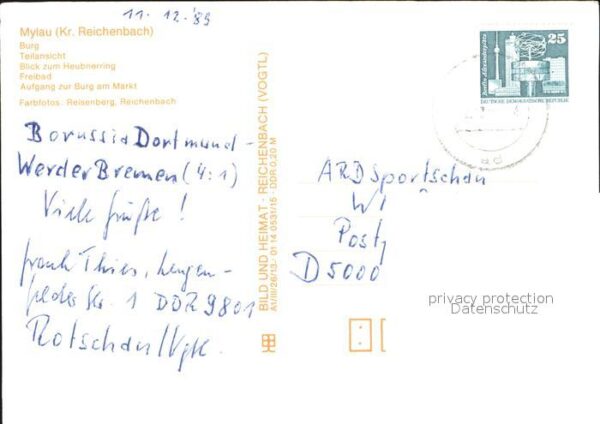 11. 12. '89
Mylau (Kr. Reichenbach)
Burg
Teilansicht
Blick zum Heubnerring
Freibad
Aufgang zur Burg am Markt
Farbfotos: Reisenberg, Reichenbach
Borussia Dortmund -
Werder Bremen (4:1)
Viele Grüße!
Frank Thies, Lengen-
felder Str. 1 DDR 9801
Rotschau/Vgtl.
BILD UND HEIMAT · REICHENBACH (VOGTL)
A1/III/26/13 · 01 14 0531/15 · DDR 0,20 M
25
Berlin-Alexanderplatz
DEUTSCHE DEMOKRATISCHE REPUBLIK
ARD Sportschau
Postf
D 5000
privacy protection
Datenschutz